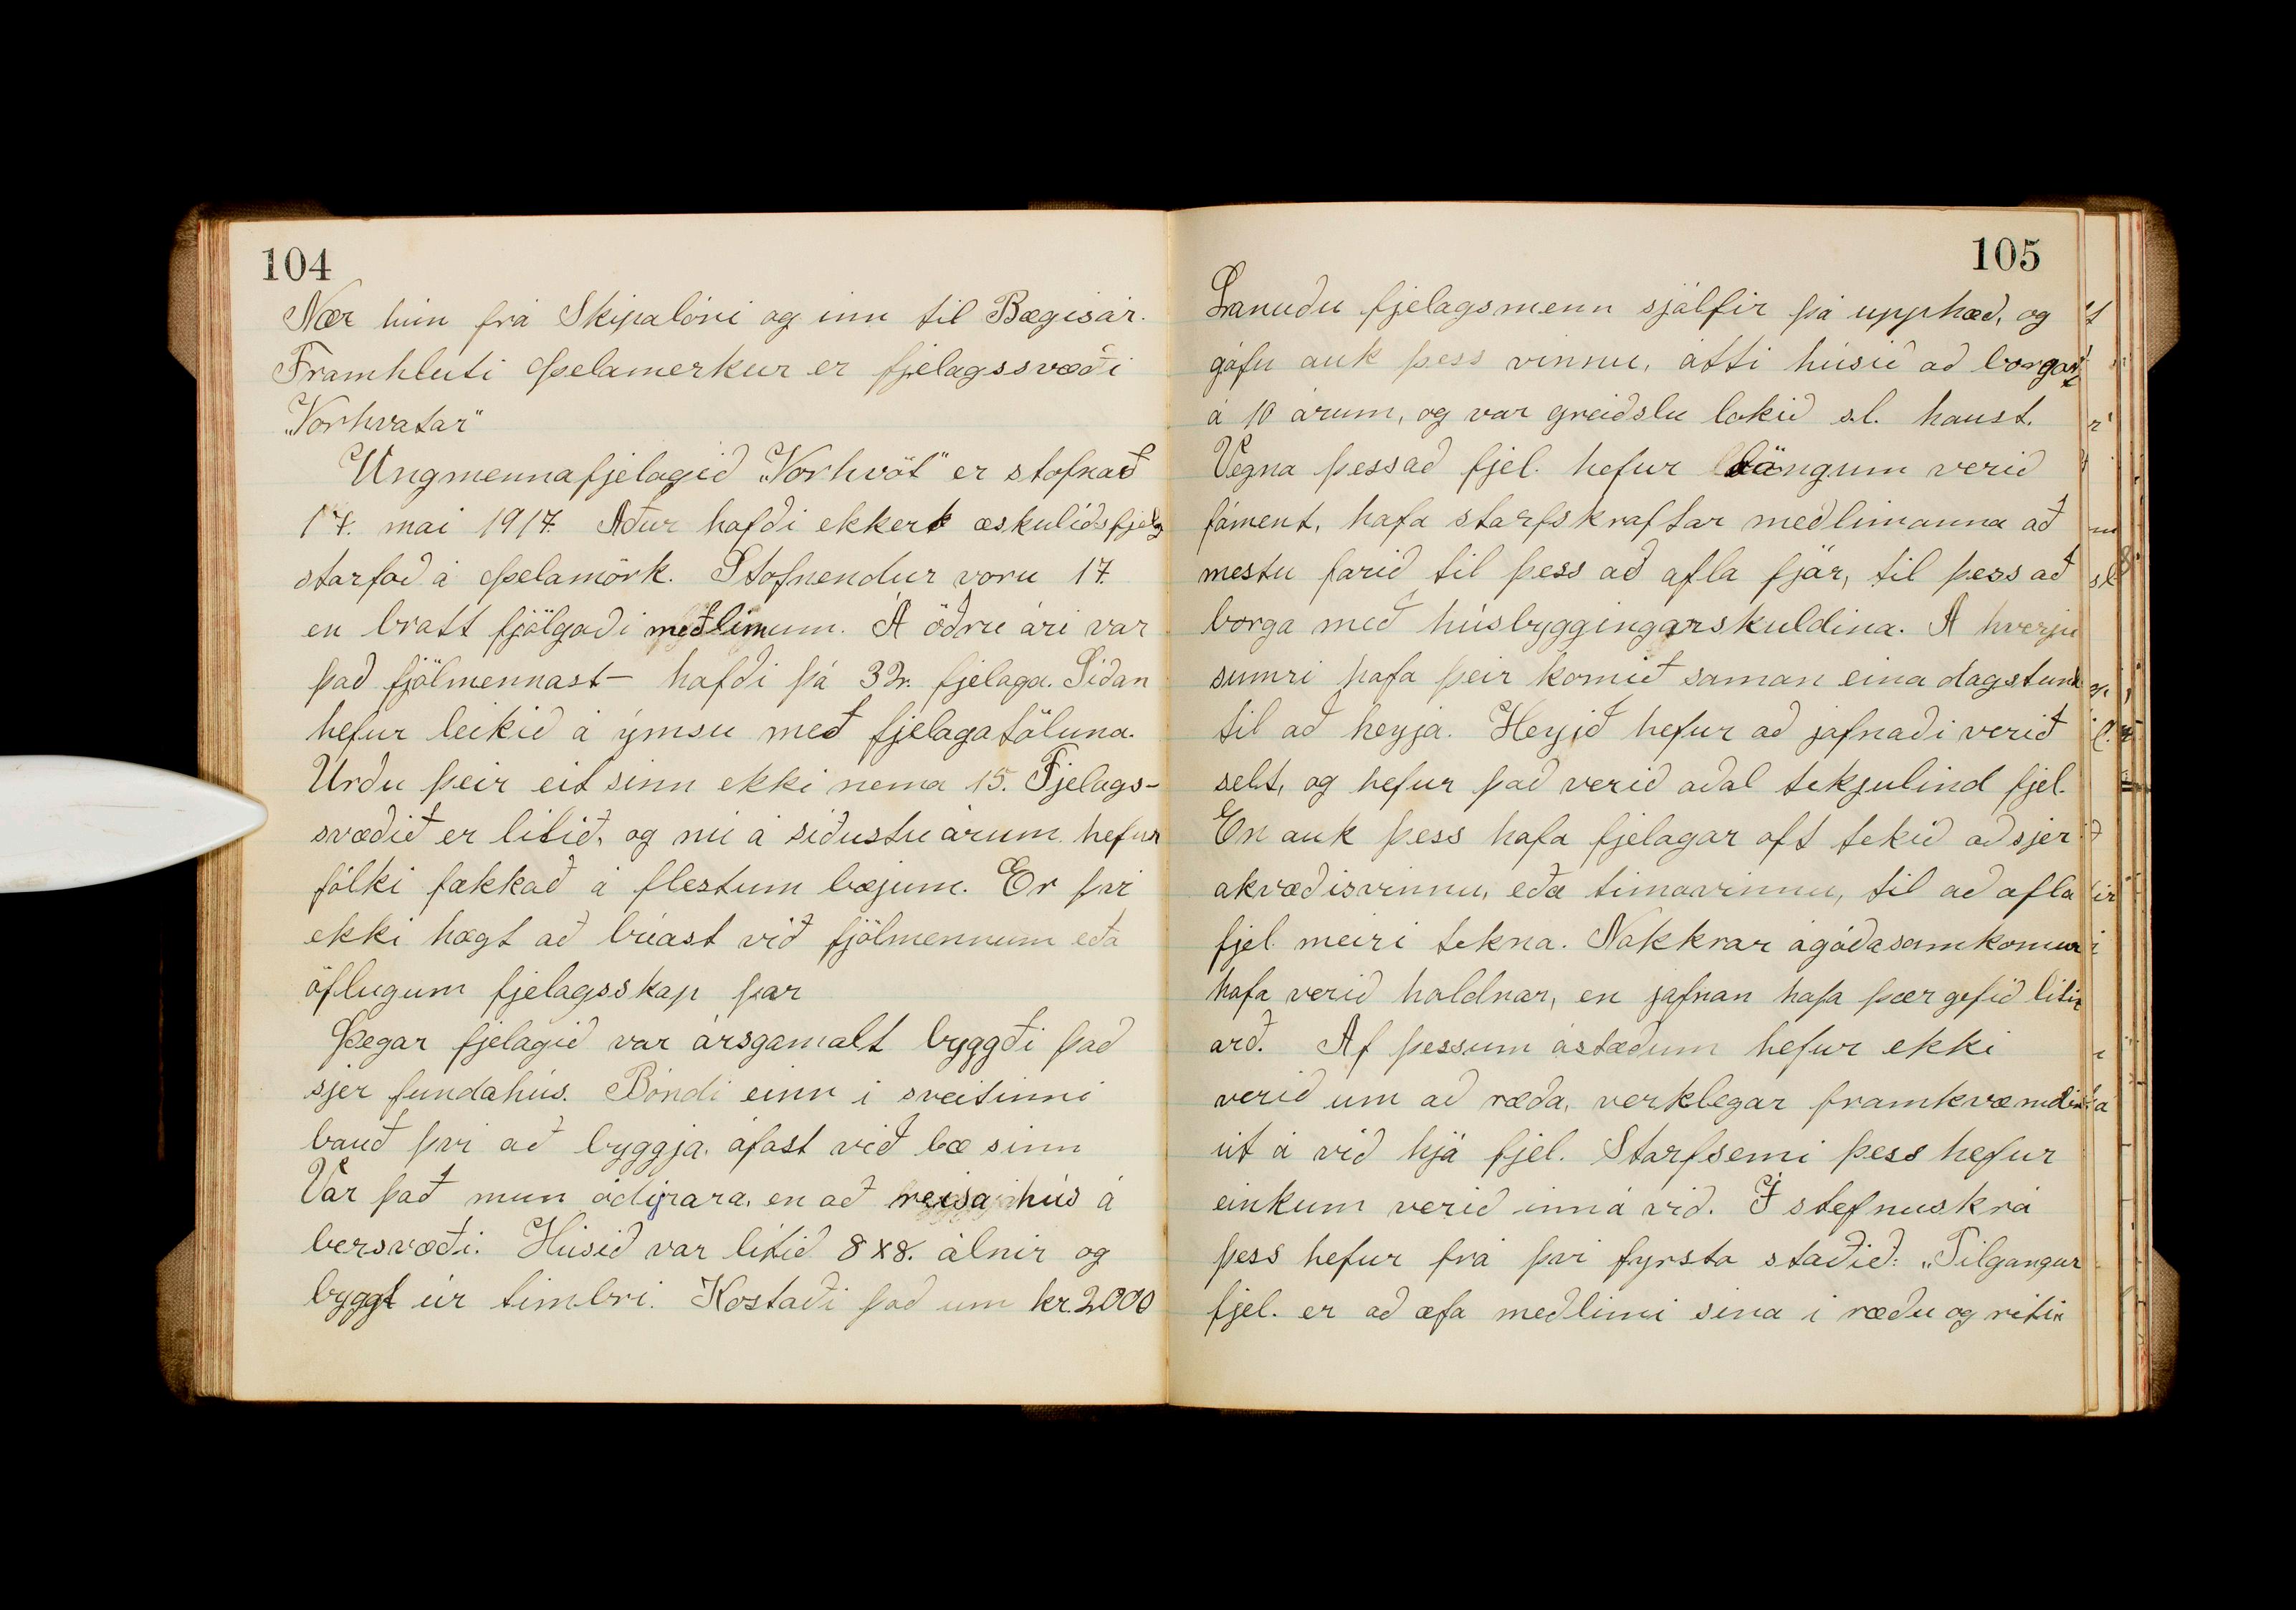 104
Nær hún frá Skipalóni og inn til Bægisár.
Framhluti Þelamerkur er fjelagssvæði
„Vorhvatar"
Ungmennafjelagið „Vorhvöt" er stofnað
17. mai 1917. Áður hafði ekkert æskulíðsfjelg
starfað á Þelamörk. Stofnendur voru 17
en brátt fjölgaði meðlimum. Á öðru ári var
það fjölmennast - hafði þá 32. fjelaga. Síðan
hefur leikið á ýmsu með fjelagatöluna.
Urðu þeir eit sinn ekki nema 15. Fjelags-
svæðið er lítið, og nú á síðustu árum hefur
fólki fækkað á flestum bæjum. Er því
ekki hægt að búast við fjölmennum eða
öflugum fjelagsskap þar
Þegar fjelagið var ársgamalt byggði það
sjer fundahús. Bóndi einn í sveitinni
bauð því að byggja áfast við bæ sinn
Var það mun ódýrara, en að reisa hús á
bersvæði. Húsið var lítið 8x8. álnir og
byggt úr timbri. Kostaði það um kr. 2000
105
Lánuðu fjelagsmenn sjálfir þá upphæð, og
gáfu auk þess vinnu, átti húsið að borgast
á 10 árum, og var greiðslu lokið s.l. haust.
Vegna þessað fjel. hefur löngum verið
fáment, hafa starfskraftar meðlimanna að
mestu farið til þess að afla fjár, til þess að
borga með húsbyggingarskuldina. Á hverju
sumri hafa þeir komið saman eina dagstund
til að heyja. Heyið hefur að jafnaði verið
selt, og hefur það verið aðal tekjulind fjel.
En auk þess hafa fjelagar oft tekið að sjer
akvæðisvinnu, eða tímavinnu, til að afla
fjel. meiri tekna. Nokkrar ágóðasamkomur
hafa verið haldnar, en jafnan hafa þær gefið lítin
arð. Af þessum ástæðum hefur ekki
verið um að ræða, verklegar framkvæmdir
út á við hjá fjel. Starfsemi þess hefur
einkum verið inná við. Í stefnuskrá
þess hefur frá því fyrsta staðið: „Tilgangur
fjel. er að æfa meðlimi sína í ræðu og ritin